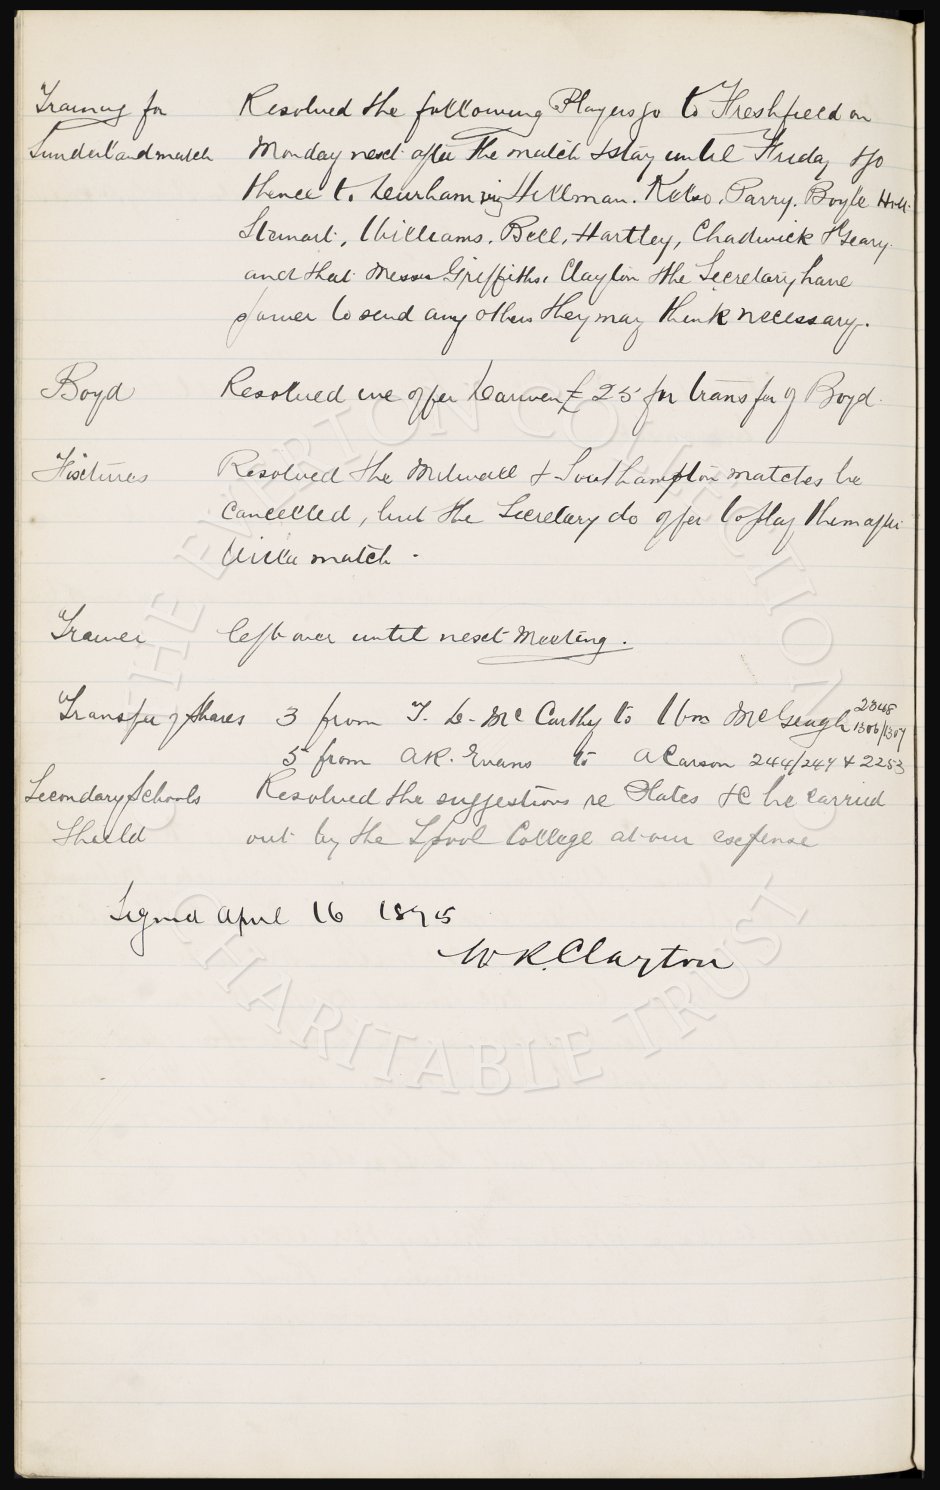 Training for Resolved the following Players go to Freshfield on
Sunderland match Monday next after the match & stay until Friday & go
thence to Durham viz Hillman. Kelso. Parry. Boyle Holt.
Stewart, Williams. Bell, Hartley, Chadwick & Geary.
and that Messrs Griffiths, Clayton & the Secretary have
power to send any others they may think necessary.
Boyd Resolved we offer Darwen £25 for transfer of Boyd.
Fixtures Resolved the Millwall & Southampton matches be
cancelled, but the Secretary do offer to play them after
Villa match.
Trainer left over until next Meeting.
Transfer of Shares 3 from T. D. McCarthy to Wm McGeagh 2348 1306/1307
5 from AR. Evans to A Carson 244/247 & 2253
Secondary Schools Resolved the suggestions re Plates &c be carried
Shield out by the Lpool College at our expense
Signed April 16 1895
W.R. Clayton
THE EVERTON COLLECTION
CHARITABLE TRUST